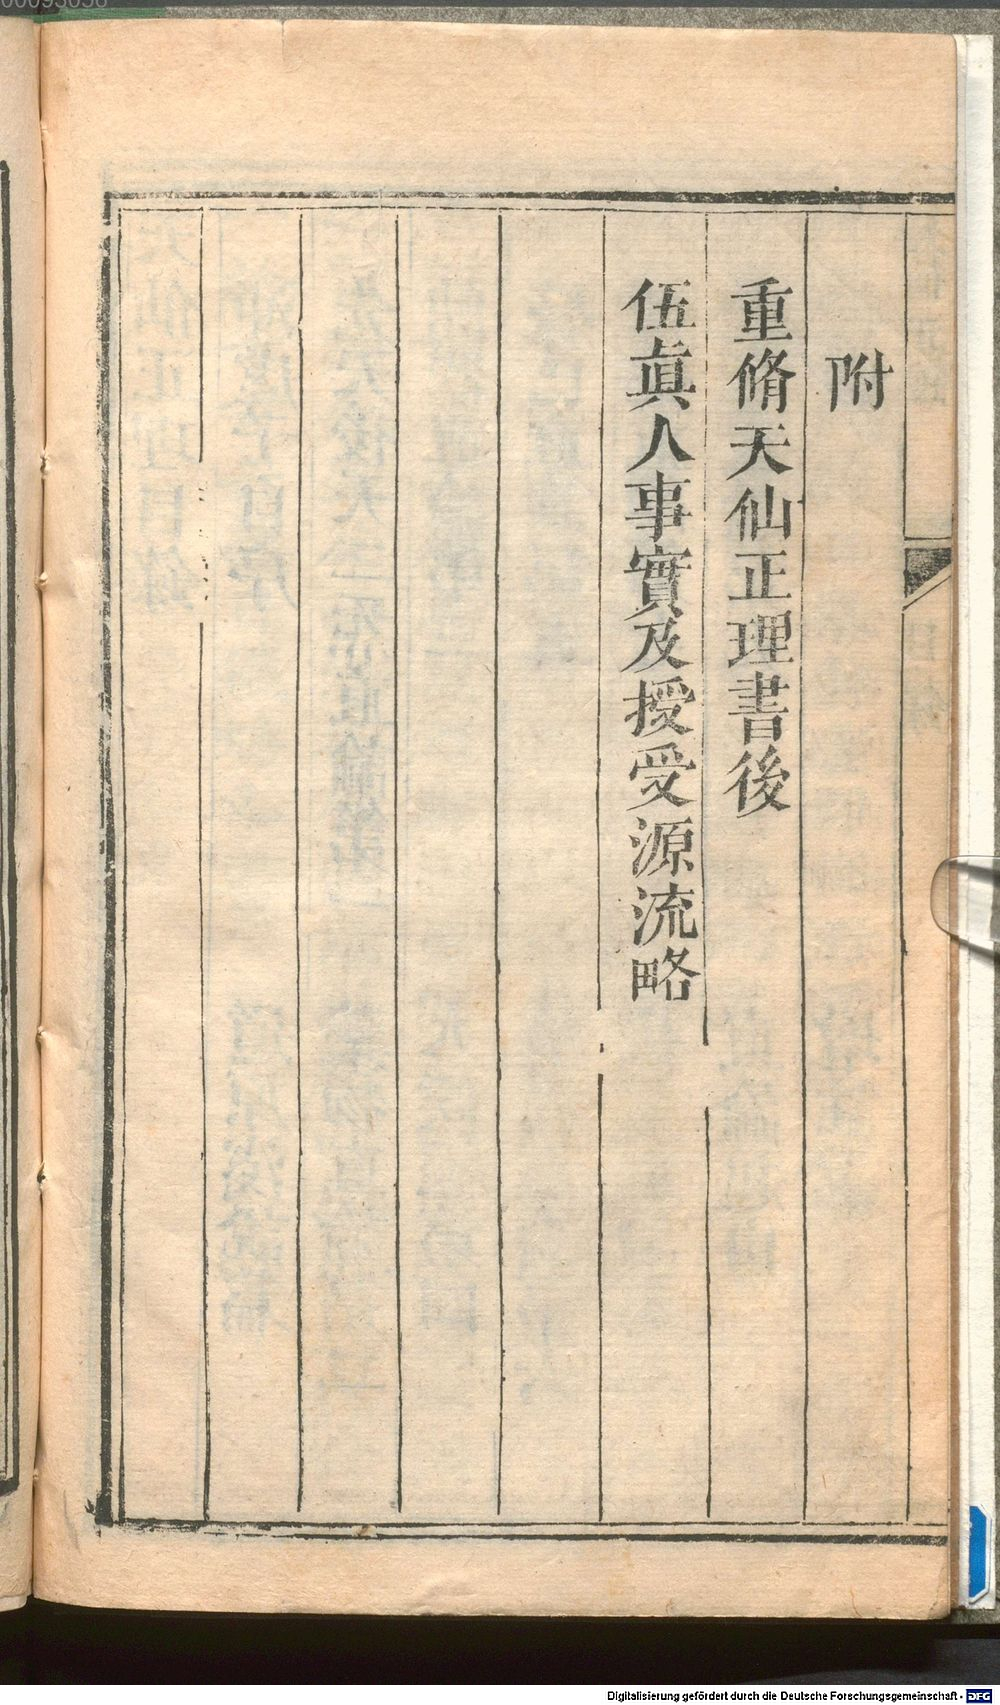 附
重脩天仙正理書後
伍眞人事實及授受源流略
Digitalisierung gefördert durch die Deutsche Forschungsgemeinschaft - DFG